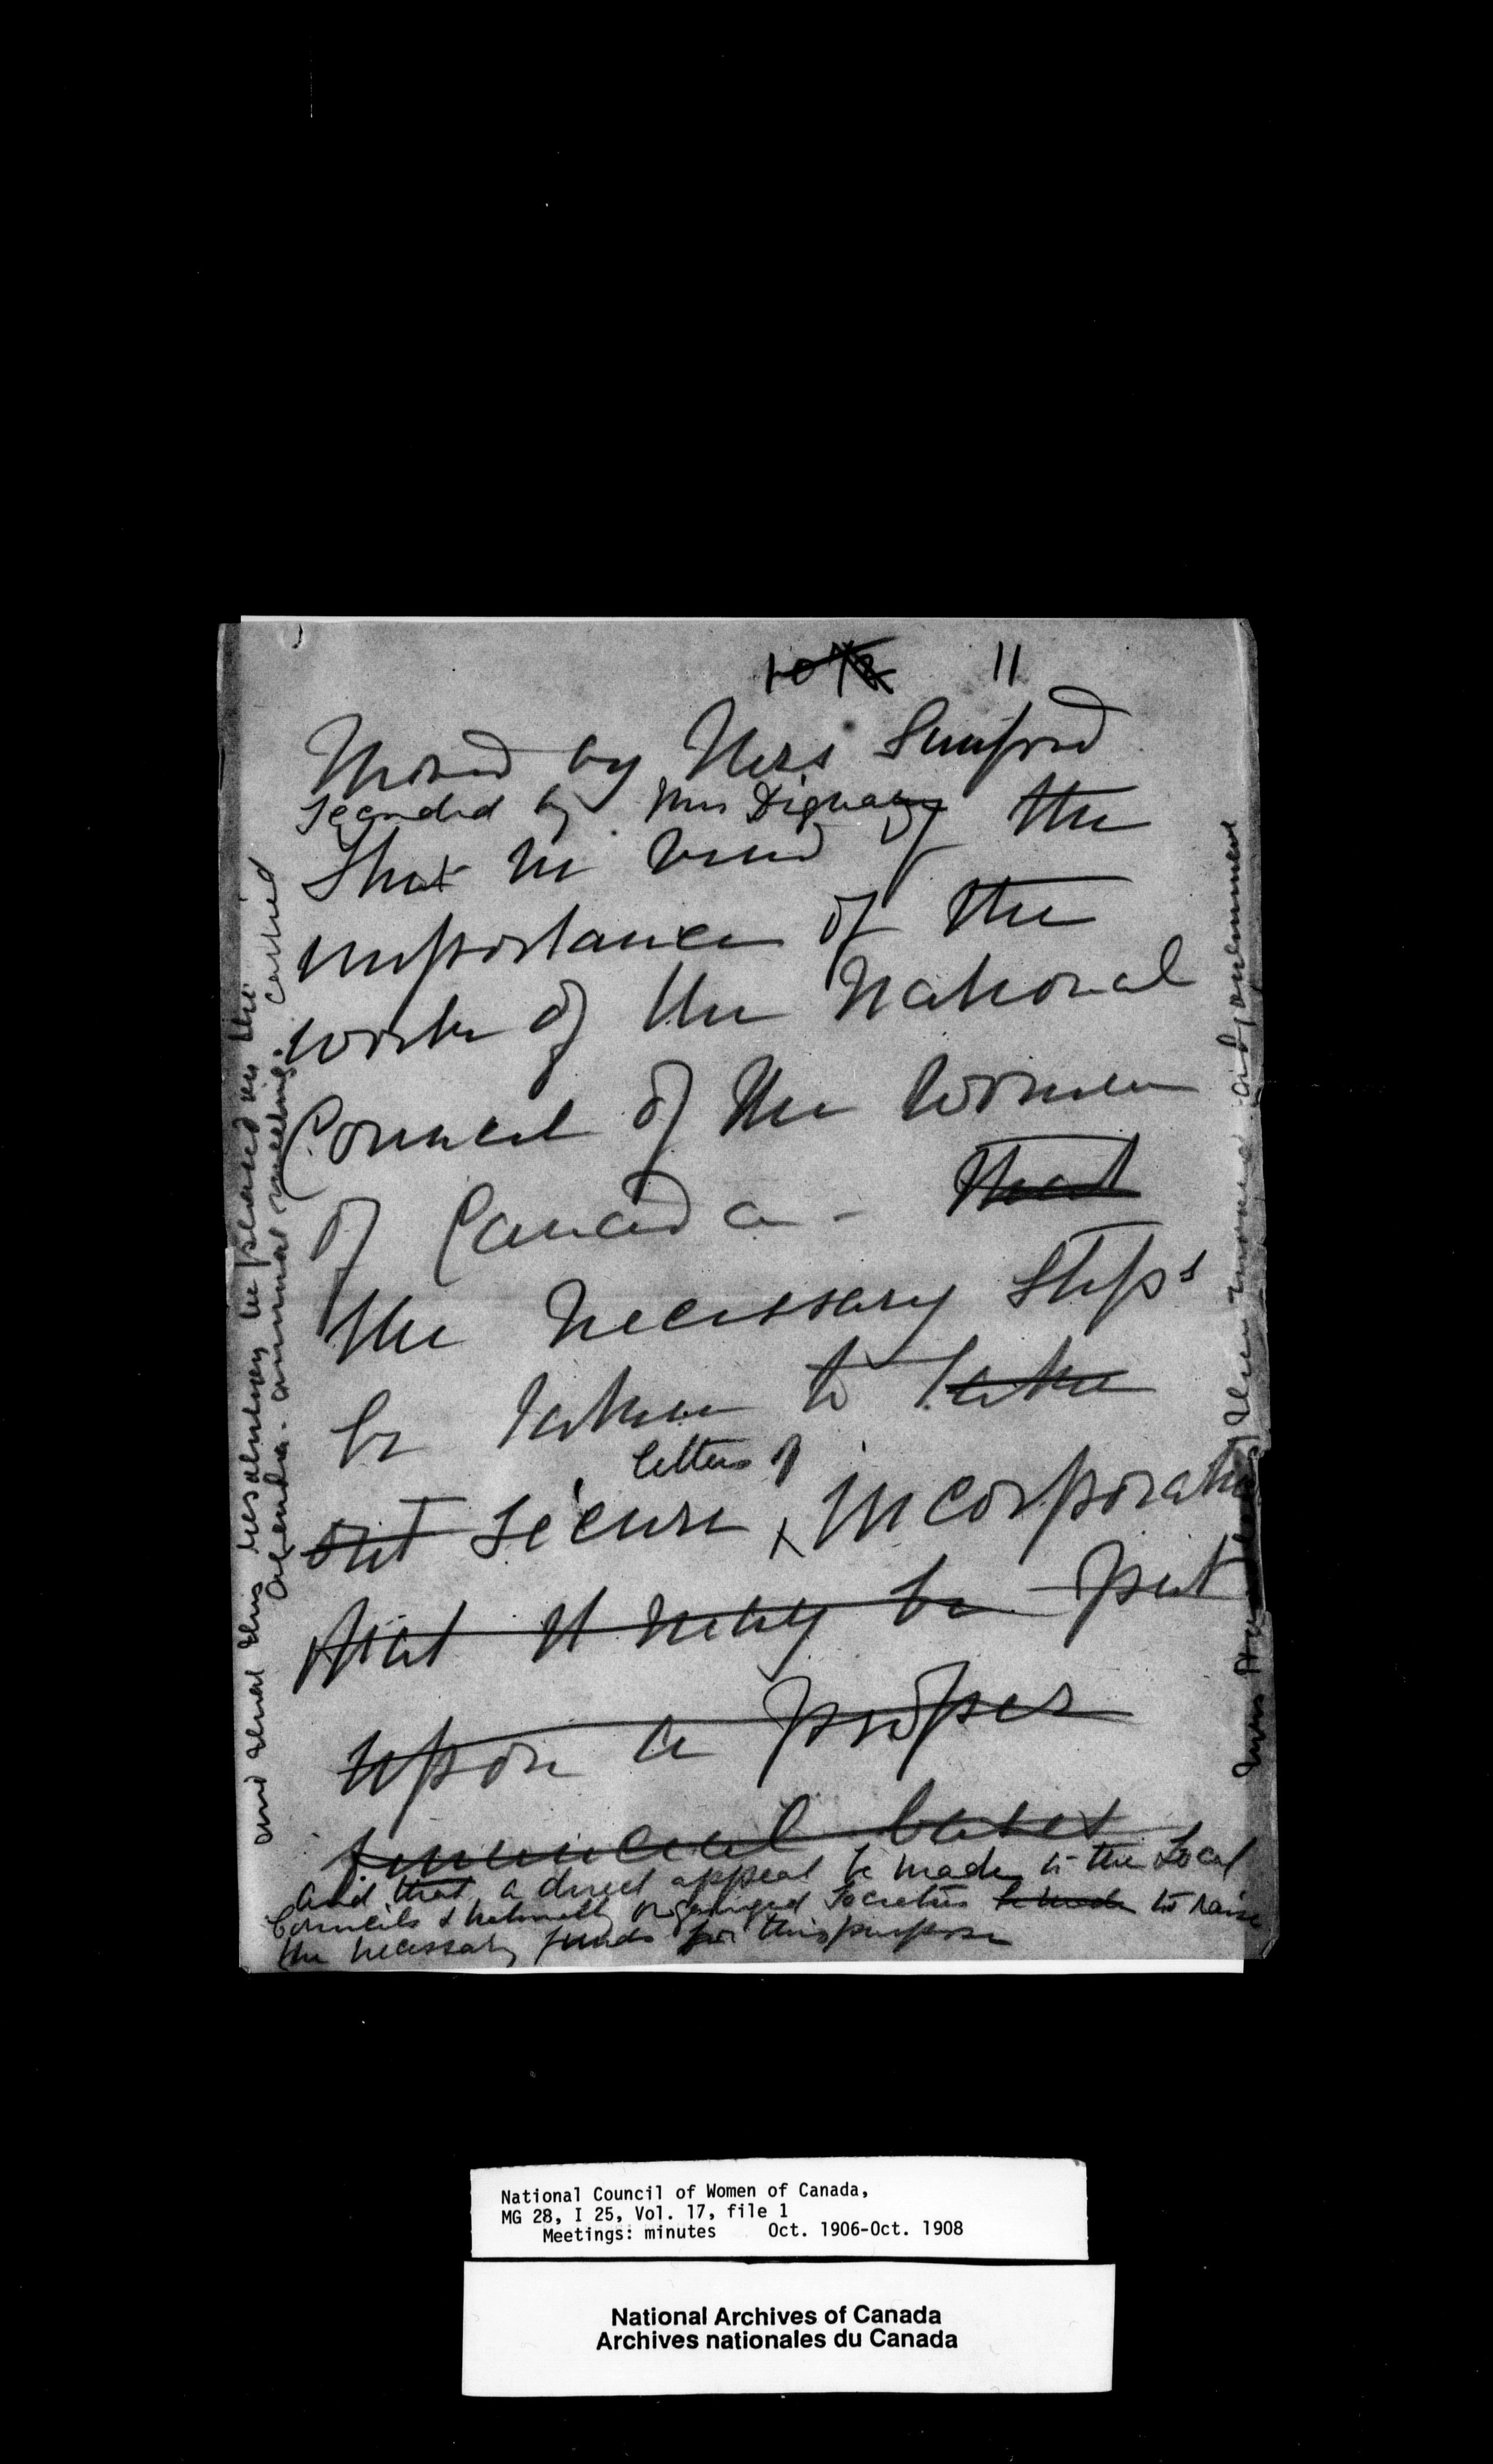 10 12 11
Moved by Mrs Sanford
Seconded by Mrs Dignam
That in view of the
importance of the
work of the National
Council of the Women
of Canada - That
the necessary steps
be taken to take
out secure letters of incorporation
that it may be put
upon a proper
financial basis
And that a direct appeal be made to the Local
Councils & nationally organized Societies be made to raise
the necessary funds for this purpose
and that this resolution be placed on the
agenda - annual meeting.
carried
Mrs then moved adjournment
National Council of Women of Canada,
MG 28, I 25, Vol. 17, file 1
Meetings: minutes Oct. 1906-Oct. 1908
National Archives of Canada
Archives nationales du Canada